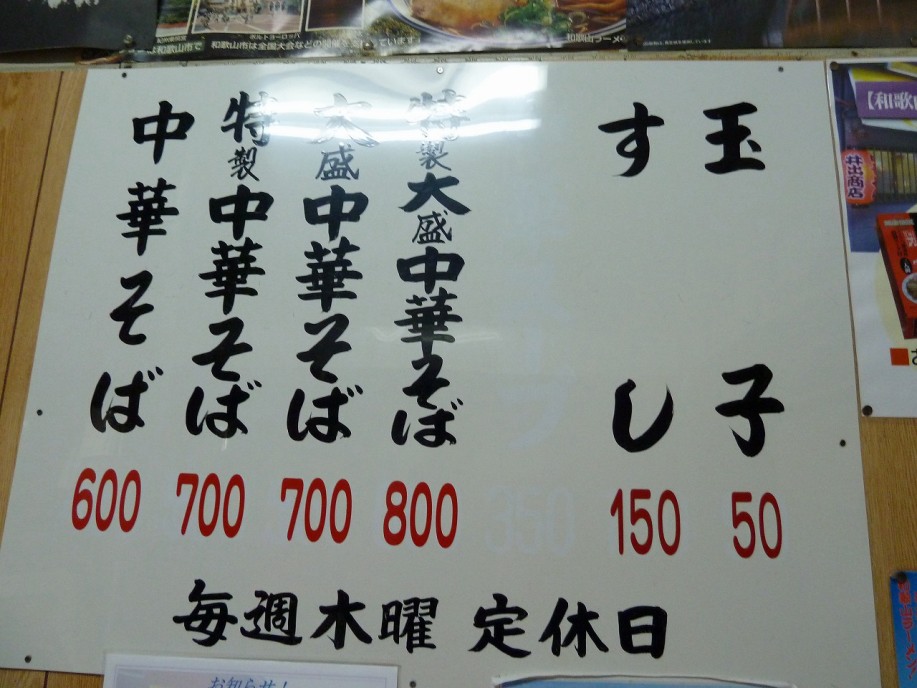 和歌山市は全国大会などの開催を
和歌山ラーメン
中華そば
600
特製中華そば
700
大盛中華そば
700
特製大盛中華そば
800
350
すし
150
玉子
50
毎週木曜 定休日
お知らせ!
井出商店